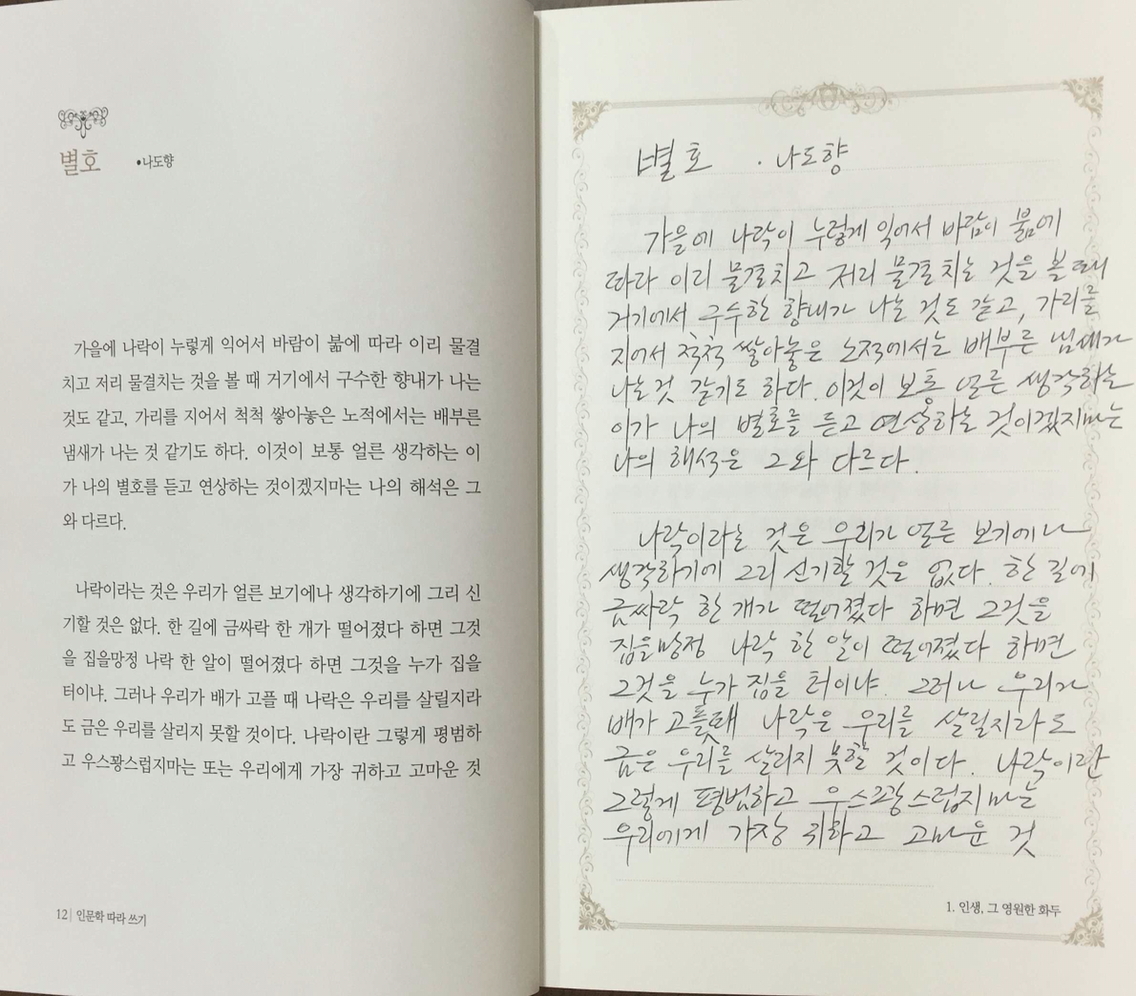 별호 •나도향
가을에 나락이 누렇게 익어서 바람이 붊에 따라 이리 물결
치고 저리 물결치는 것을 볼 때 거기에서 구수한 향내가 나는
것도 같고, 가리를 지어서 척척 쌓아놓은 노적에서는 배부른
냄새가 나는 것 같기도 하다. 이것이 보통 얼른 생각하는 이
가 나의 별호를 듣고 연상하는 것이겠지마는 나의 해석은 그
와 다르다.
나락이라는 것은 우리가 얼른 보기에나 생각하기에 그리 신
기할 것은 없다. 한 길에 금싸락 한 개가 떨어졌다 하면 그것
을 집을망정 나락 한 알이 떨어졌다 하면 그것을 누가 집을
터이냐. 그러나 우리가 배가 고플 때 나락은 우리를 살릴지라
도 금은 우리를 살리지 못할 것이다. 나락이란 그렇게 평범하
고 우스꽝스럽지마는 또는 우리에게 가장 귀하고 고마운 것
12| 인문학 따라 쓰기
별호 · 나도향
가을에 나락이 누렇게 익어서 바람이 붊에
따라 이리 물결치고 저리 물결치는 것을 볼 때
거기에서 구수한 향내가 나는 것도 같고, 가리를
지어서 척척 쌓아놓은 노적에서는 배부른 냄새가
나는 것 같기도 하다. 이것이 보통 얼른 생각하는
이가 나의 별호를 듣고 연상하는 것이겠지마는
나의 해석은 그와 다르다.
나락이라는 것은 우리가 얼른 보기에나
생각하기에 그리 신기할 것은 없다. 한 길에
금싸락 한 개가 떨어졌다 하면 그것을
집을망정 나락 한 알이 떨어졌다 하면
그것을 누가 집을 터이냐. 그러나 우리가
배가 고플때 나락은 우리를 살릴지라도
금은 우리를 살리지 못할 것이다. 나락이란
그렇게 평범하고 우스꽝스럽지마는
우리에게 가장 귀하고 고마운 것
1. 인생, 그 영원한 화두